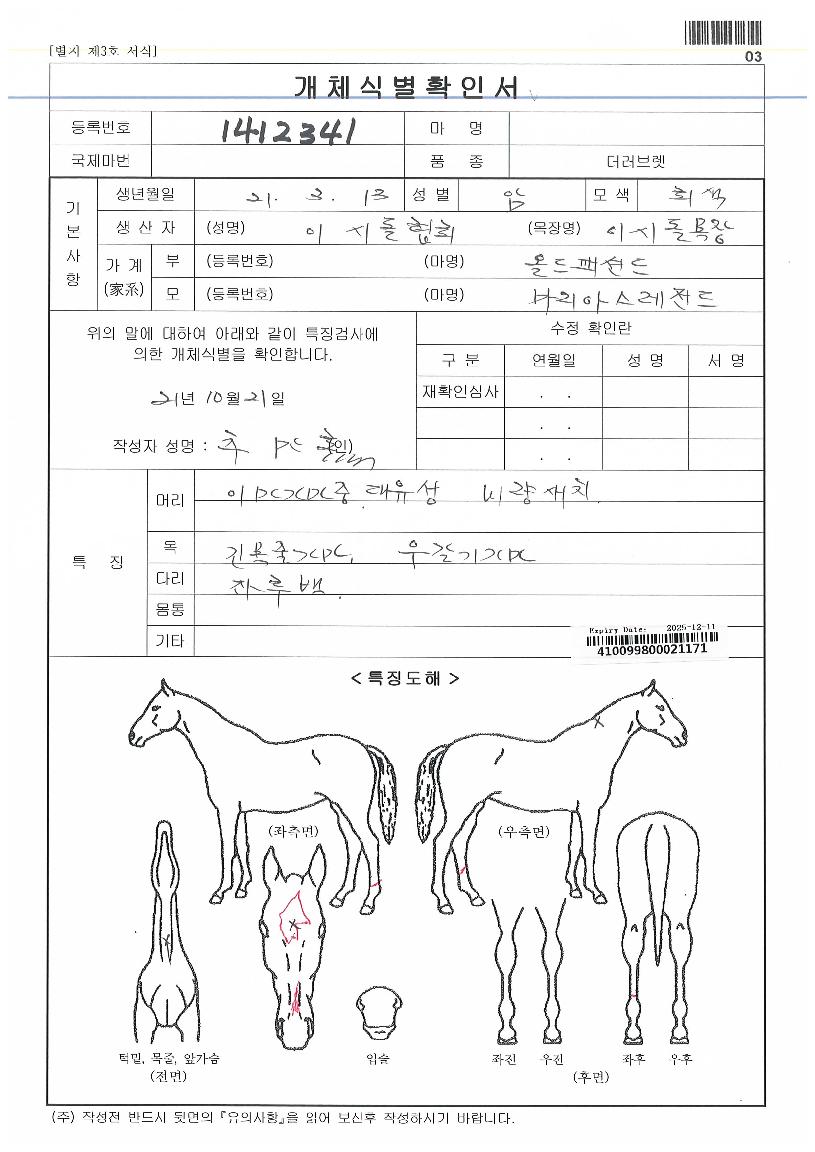 [별지 제3호 서식]
03
개체식별확인서
등록번호 1412341 마 명
국제마번 품 종 더러브렛
기본사항
생년월일 21. 3. 13 성 별 암 모 색 회색
생 산 자 (성명) 이시돌협회 (목장명) 이시돌목장
가 계 (家系) 부 (등록번호) (마명) 올드패션드
모 (등록번호) (마명) 마리아스레전드
위의 말에 대하여 아래와 같이 특징검사에
의한 개체식별을 확인합니다.
21년 10월 21일
작성자 성명 : (인)
수정 확인란
구 분 연월일 성 명 서 명
재확인심사 . .
. .
. .
특 징
머리
목
다리 좌후백
몸통
기타
Expiry Date: 2025-12-11
410099800021171
< 특징도해 >
(좌측면) (우측면)
턱밑, 목줄, 앞가슴 입술 좌전 우전 좌후 우후
(전면) (후면)
(주) 작성전 반드시 뒷면의 『유의사항』을 읽어 보신후 작성하시기 바랍니다.